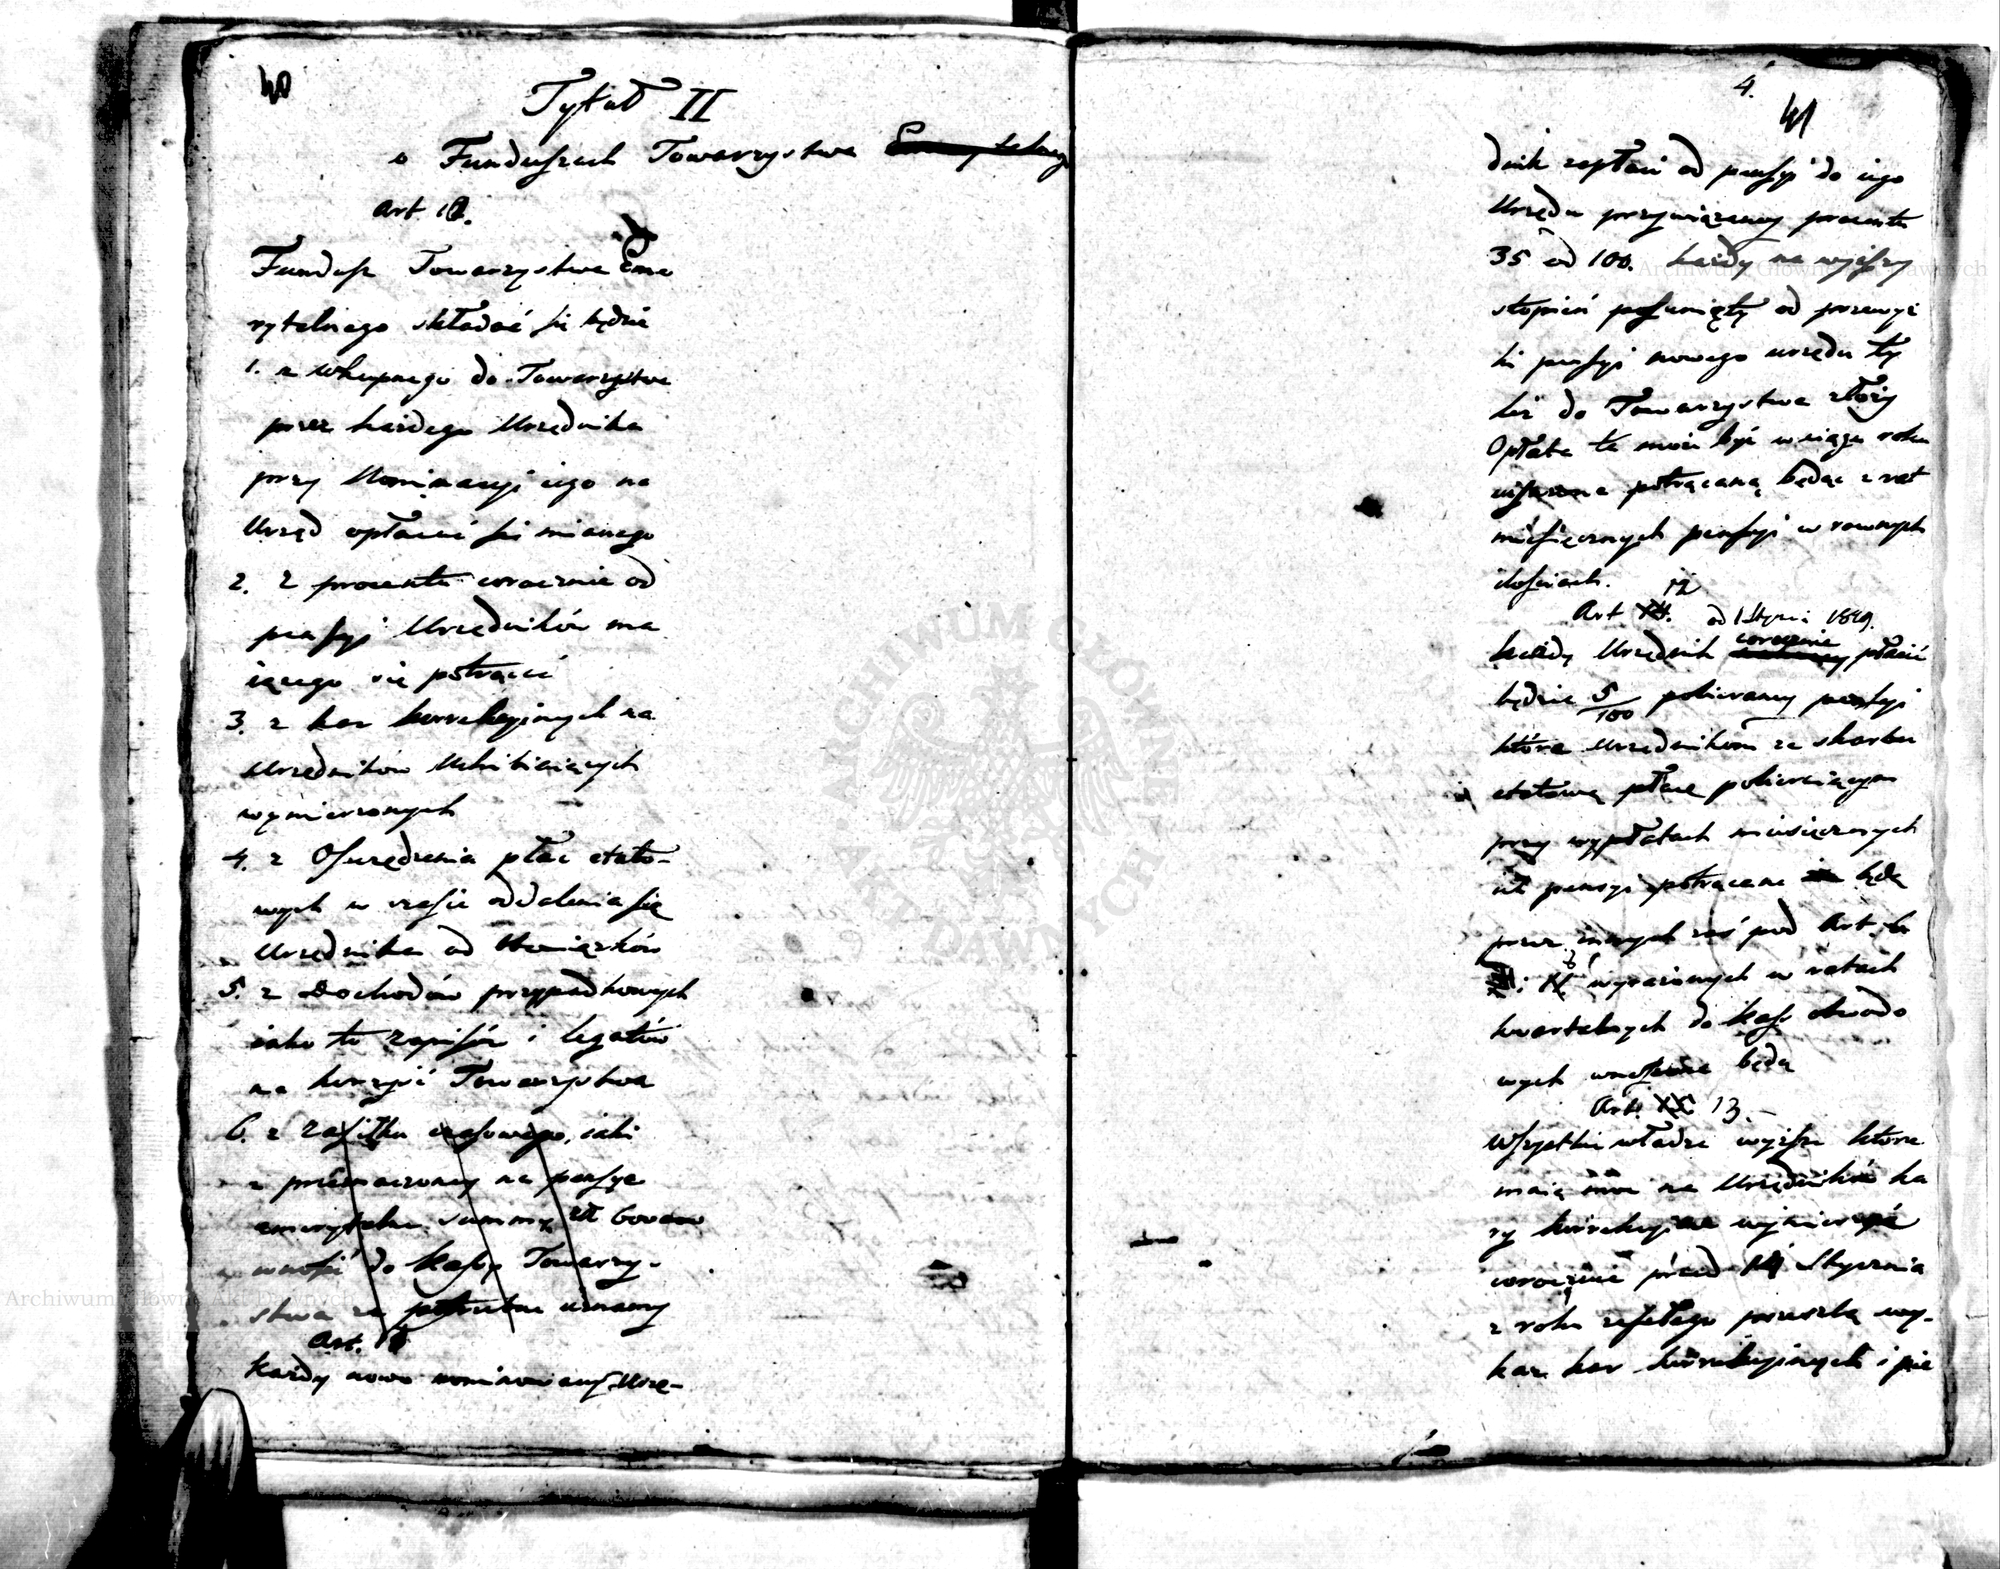 40
Tytuł II
o Funduszach Towarzystwa
Art 10.
Fundusz Towarzystwa Eme
rytalnego składać się będzie
1. z Wkupnego do Towarzystwa
przez każdego Urzędnika
przy Nominacyi iego na
Urząd opłacić się mianego
2. z procentu corocznie od
pensyi Urzędników ma
iącego się potrącić
3. z kar korrekcyjnych na
Urzędników uchibiaiących
wymierzonych
4. z Oszczędzenia płac etato-
wych w czasie oddalenia się
Urzędnika od Obowiązków
5. z Dochodów przypadkowych
iako to zapisów i legatów
na korzyść Towarzystwa
6. z zasiłku czasowego, iaki
z przeznaczoney na pensye
emerytalne summy zł
wnosić do kassy Towarzy-
stwa za potrzebne uznamy
Art. 11
każdy nowo nominowany Urzę-
4.
41
dnik zapłaci od pensyi do iego
Urzędu przywiązaney procentu
35 od 100. każdy na wyższy
stopień posunięty od przewyż
ki pensyi nowego urzędu ty
leż do Towarzystwa złoży
Opłata ta może być w ciągu roku
uiszczona potrącaną będąc z rat
miesięcznych pensyi w rownych
ilościach.
Art 12
od 1 Stycznia 1819.
każdy Urzędnik corocznie płacić
będzie 5/100 pobieraney pensyi
które Urzędnikom ze skarbu
etatową płacę pobieraiącym
przy wypłatach miesięcznych
ich pensyi potrącane będą
przez innych zaś pod Art
wyrażonych w ratach
kwartalnych do kass obwodo
wych wnoszone będą
Art. 13.
Wszystkie władze wyższe które
maią moc na Urzędników ka
ry korrekcyine wymierzać
corocznie przed 14 Stycznia
z roku zeszłego prześlą wy-
kaz kar korrekcyjnych i pie